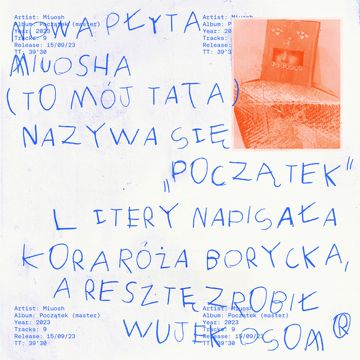 Artist: Miuosh
Album: Początek (master)
Year: 2023
Tracks: 9
Release: 15/09/23
TT: 39'30
Artist: Miuosh
Release: 15/09/23
TT: 39'30
NOWA PŁYTA
MIUOSHA
(TO MÓJ TATA)
NAZYWA SIĘ
„POCZĄTEK"
LITERY NAPISAŁA
KORA RÓŻA BORYCKA,
A RESZTĘ ZROBIŁ
WUJEK SOM®
Artist: Miuosh
Album: Początek (master)
Year: 2023
Tracks: 9
Release: 15/09/23
TT: 39'30
Artist: Miuosh
Album: Początek (master)
Year: 2023
Tracks: 9
Release: 15/09/23
TT: 39'30